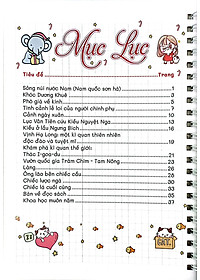 Mục Lục
Tiêu đề Trang
Sông núi nước Nam (Nam quốc sơn hà) 1
Khóc Dương Khuê 3
Phò giá về kinh 5
Tình cảnh lẻ loi của người chinh phụ 7
Cảnh ngày xuân 10
Lục Vân Tiên cứu Kiều Nguyệt Nga 13
Kiều ở lầu Ngưng Bích 16
Vịnh Hạ Long: một kì quan thiên nhiên
độc đáo và tuyệt mĩ 19
Khám phá kì quan thế giới:
Thác I-goa-du 21
Vườn quốc gia Tràm Chim - Tam Nông 23
Làng 26
Ông lão bên chiếc cầu 28
Chiếc lược ngà 30
Chiếc lá cuối cùng 33
Bàn về đọc sách 35
Khoa học muôn năm 37